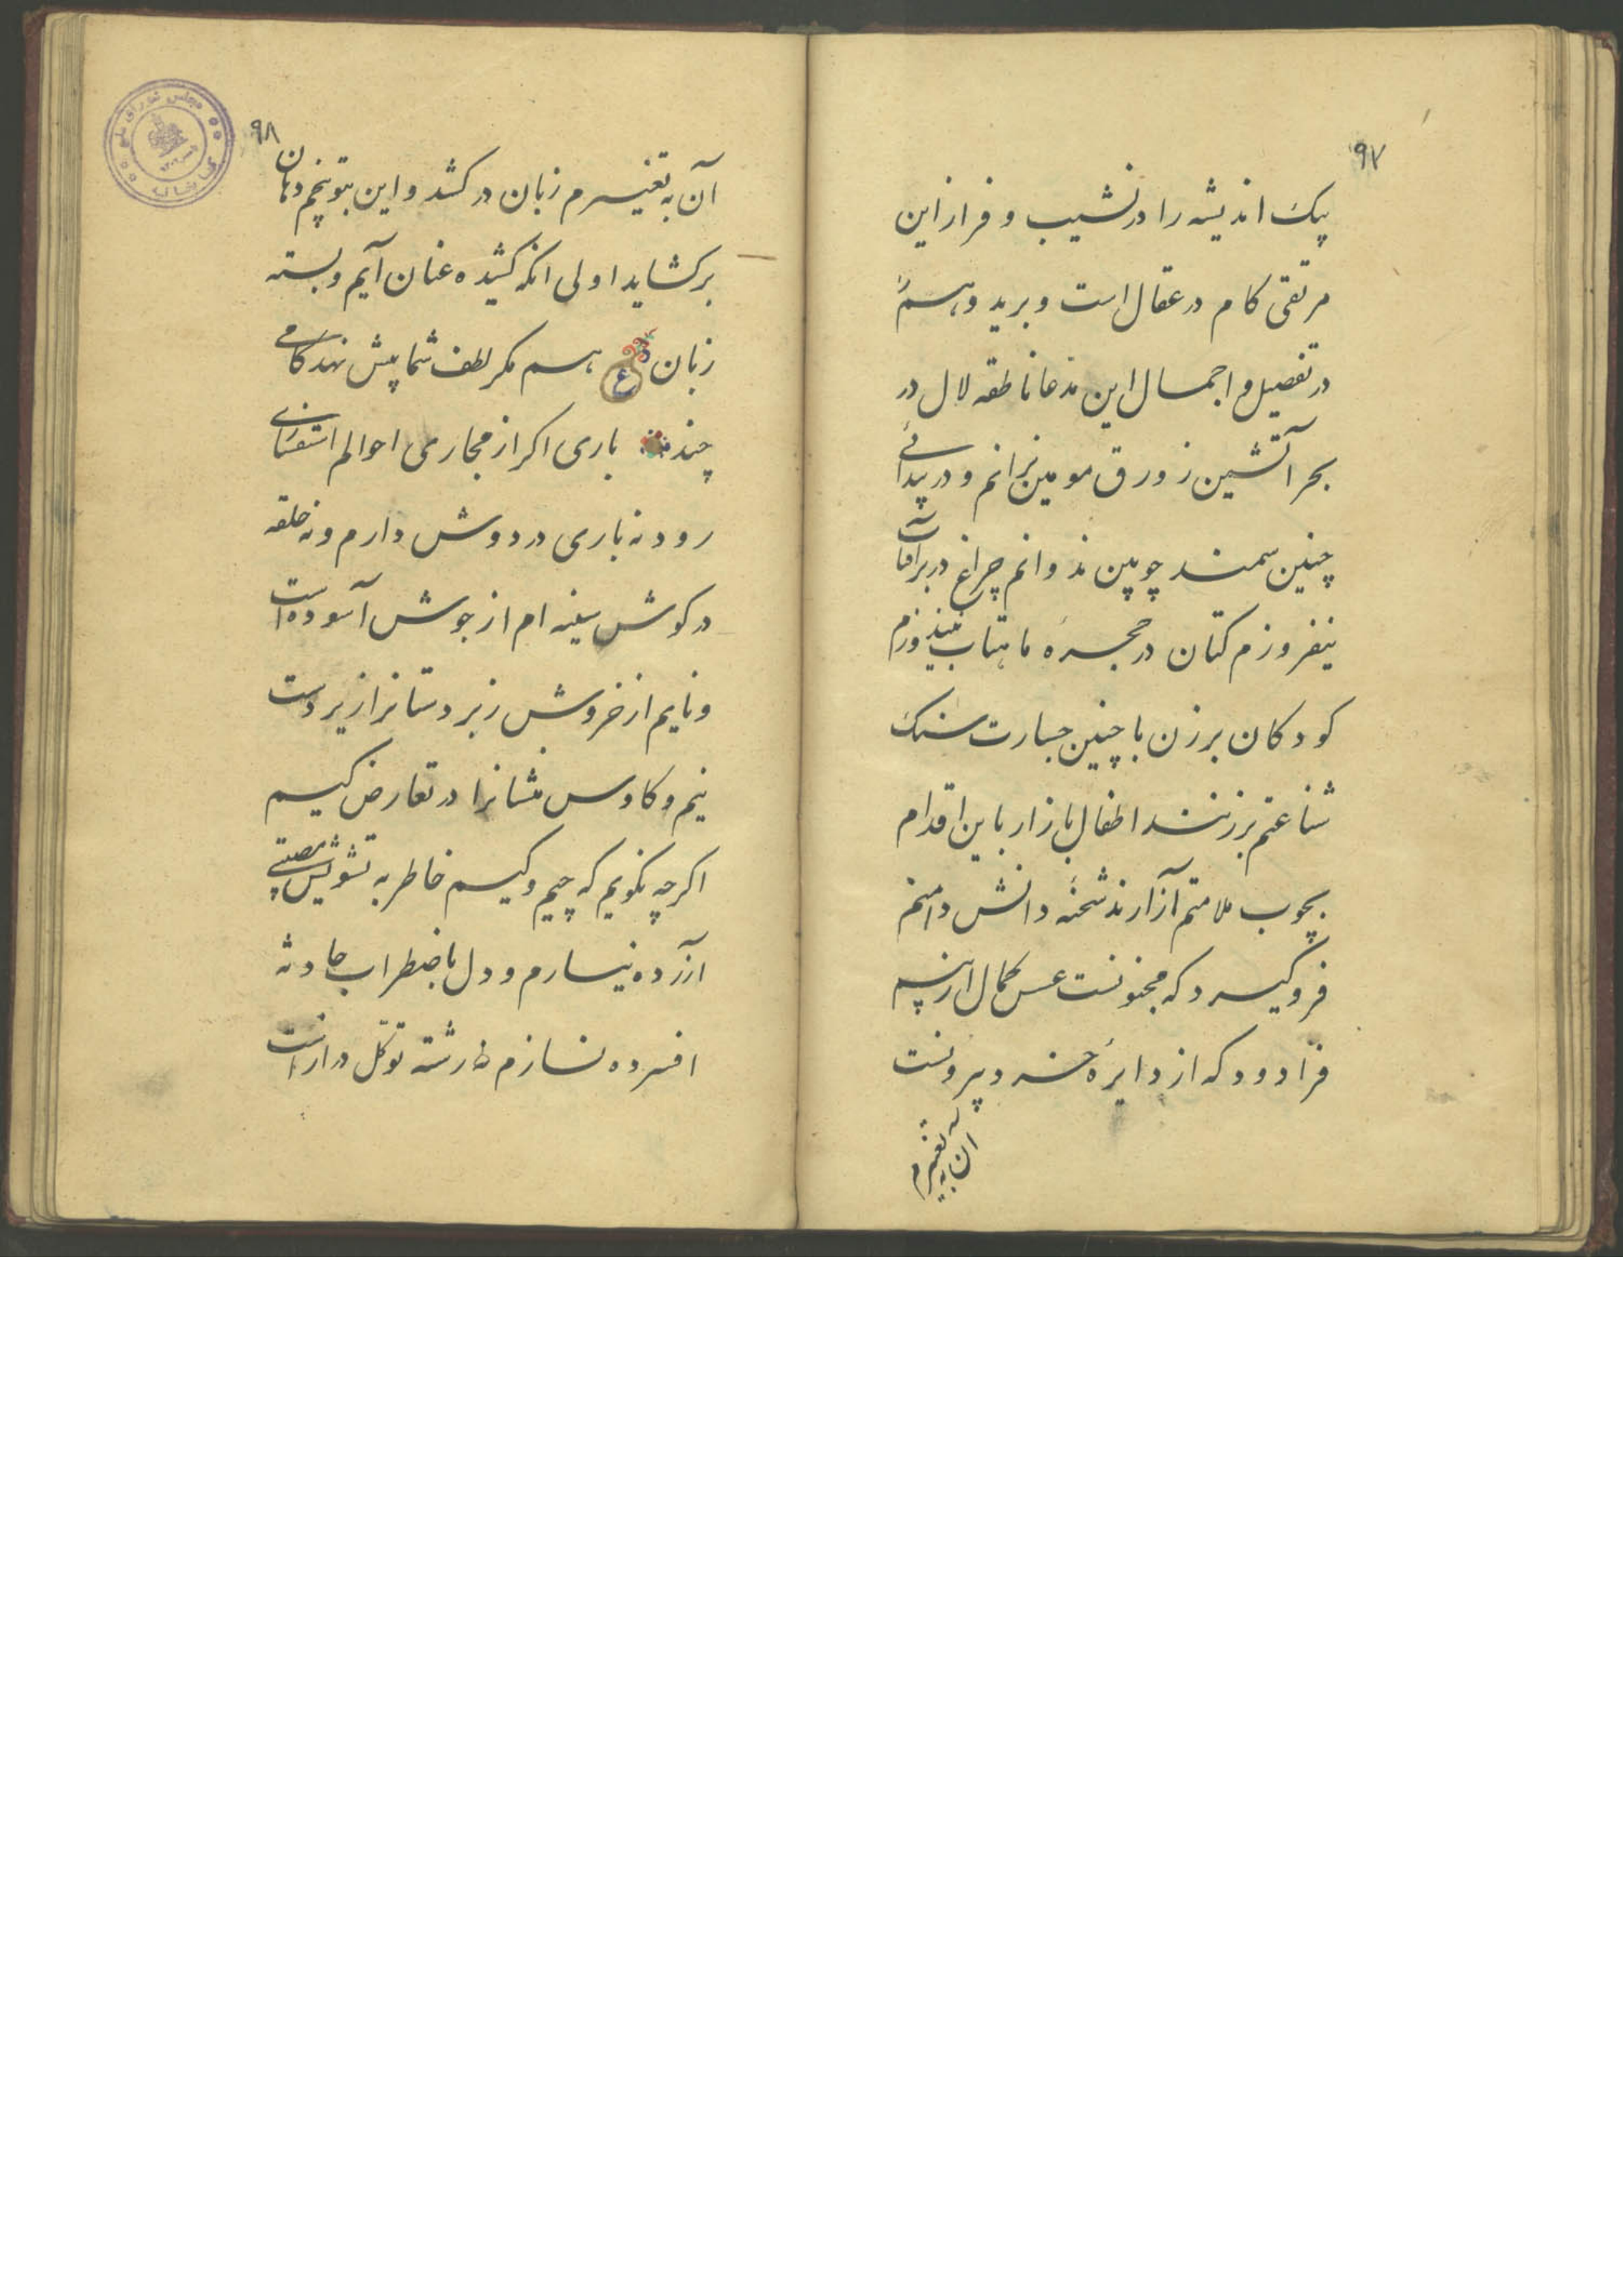 ۹۷
پیک اندیشه را در نشیب و فراز این
مرتقی کام در عقال است و برید وهم
در تفصیل و اجمال این مدعا ناطقه لال در
بحر آتشین زورق مومین نرانم و در پیدائی
چنین سمند چوبین ندوانم چراغ در برابر آفتاب
نیفروزم کتان در حجرهٔ ماهتاب
کودکان برزن با چنین جسارت سنک
شناعتم برزنند اطفال بازار باین اقدام
بچوب ملامتم آزارند شحنهٔ دانش دامنم
فروگیرد که مجنونست عسس کمال از پیم
فرا دود که از دایرهٔ خرد بیرونست
آن به تغییرم
۹۸
آن به تغییرم زبان در کشد و این بتوبیخم دهان
برکشاید اولی انکه کشیده عنان آیم و بسته
زبان ع هم مکر لطف شما پیش نهد کامی
چند باری اکر از مجاری احوالم استفسای
رود نه باری در دوش دارم ونه حلقه
در کوش سینه ام از جوش آسوده است
ونایم از خروش زبردستانرا زیردست
نیم و کاوس منشانرا در تعارض کیم
اکرچه نکویم که چیم و کیم خاطر به تشویش مصیبتی
آزرده نیارم و دل باضطراب حادثه
افسرده نسازم رشته توکل دراز است